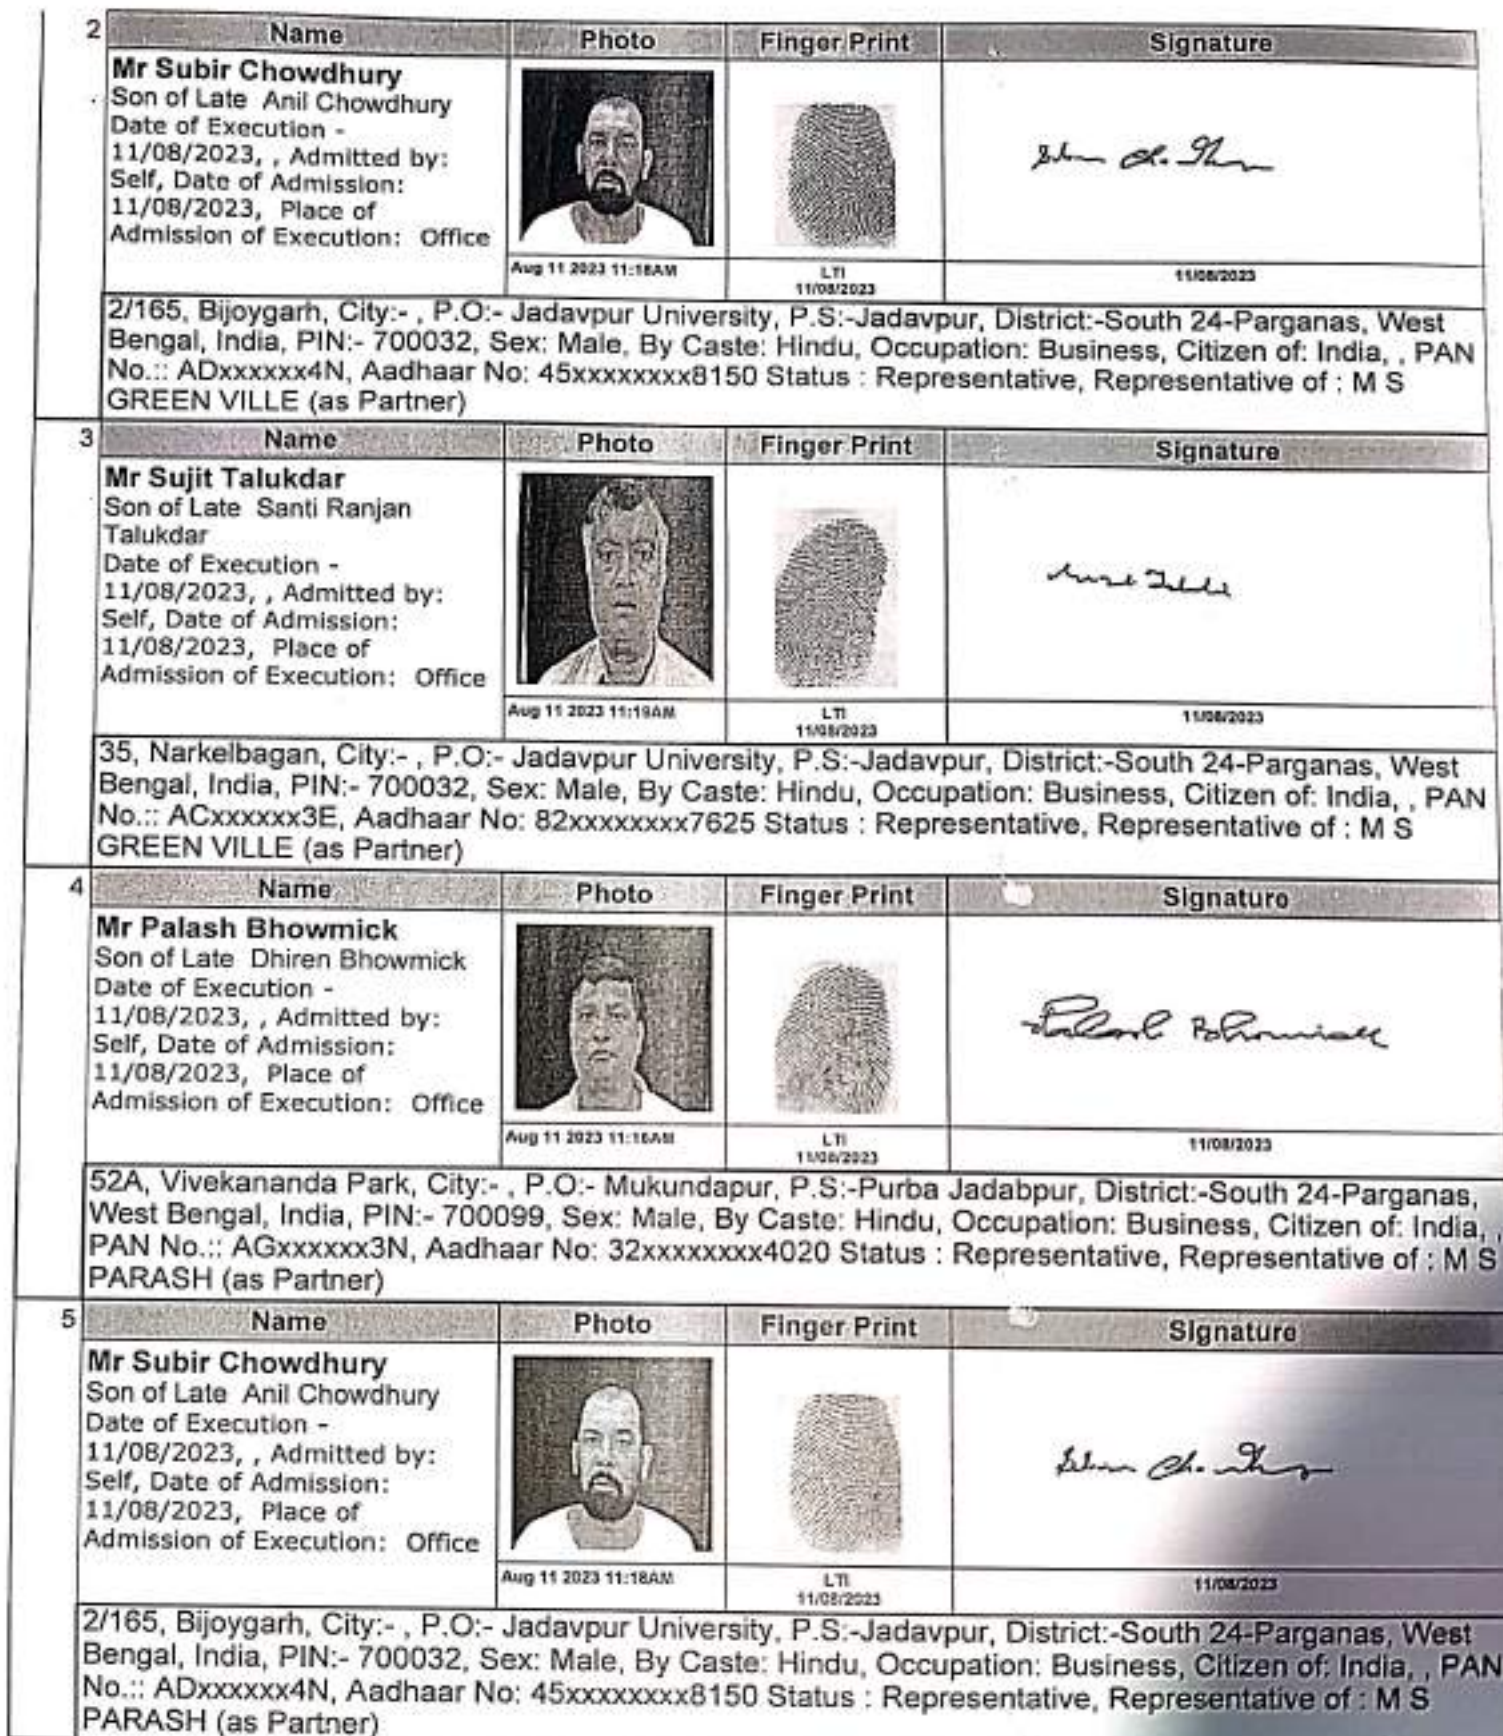 2
Name Photo Finger Print Signature
Mr Subir Chowdhury
Son of Late Anil Chowdhury
Date of Execution -
11/08/2023, , Admitted by:
Self, Date of Admission:
11/08/2023, Place of
Admission of Execution: Office
Aug 11 2023 11:18AM LTI 11/08/2023
11/08/2023
2/165, Bijoygarh, City:- , P.O:- Jadavpur University, P.S:-Jadavpur, District:-South 24-Parganas, West
Bengal, India, PIN:- 700032, Sex: Male, By Caste: Hindu, Occupation: Business, Citizen of: India, , PAN
No.:: ADxxxxxx4N, Aadhaar No: 45xxxxxxxx8150 Status : Representative, Representative of : M S
GREEN VILLE (as Partner)
3
Name Photo Finger Print Signature
Mr Sujit Talukdar
Son of Late Santi Ranjan
Talukdar
Date of Execution -
11/08/2023, , Admitted by:
Self, Date of Admission:
11/08/2023, Place of
Admission of Execution: Office
Aug 11 2023 11:19AM LTI 11/08/2023
11/08/2023
35, Narkelbagan, City:- , P.O:- Jadavpur University, P.S:-Jadavpur, District:-South 24-Parganas, West
Bengal, India, PIN:- 700032, Sex: Male, By Caste: Hindu, Occupation: Business, Citizen of: India, , PAN
No.:: ACxxxxxx3E, Aadhaar No: 82xxxxxxxx7625 Status : Representative, Representative of : M S
GREEN VILLE (as Partner)
4
Name Photo Finger Print Signature
Mr Palash Bhowmick
Son of Late Dhiren Bhowmick
Date of Execution -
11/08/2023, , Admitted by:
Self, Date of Admission:
11/08/2023, Place of
Admission of Execution: Office
Palash Bhowmick
Aug 11 2023 11:16AM LTI 11/08/2023
11/08/2023
52A, Vivekananda Park, City:- , P.O:- Mukundapur, P.S:-Purba Jadabpur, District:-South 24-Parganas,
West Bengal, India, PIN:- 700099, Sex: Male, By Caste: Hindu, Occupation: Business, Citizen of: India, ,
PAN No.:: AGxxxxxx3N, Aadhaar No: 32xxxxxxxx4020 Status : Representative, Representative of : M S
PARASH (as Partner)
5
Name Photo Finger Print Signature
Mr Subir Chowdhury
Son of Late Anil Chowdhury
Date of Execution -
11/08/2023, , Admitted by:
Self, Date of Admission:
11/08/2023, Place of
Admission of Execution: Office
Aug 11 2023 11:18AM LTI 11/08/2023
11/08/2023
2/165, Bijoygarh, City:- , P.O:- Jadavpur University, P.S:-Jadavpur, District:-South 24-Parganas, West
Bengal, India, PIN:- 700032, Sex: Male, By Caste: Hindu, Occupation: Business, Citizen of: India, , PAN
No.:: ADxxxxxx4N, Aadhaar No: 45xxxxxxxx8150 Status : Representative, Representative of : M S
PARASH (as Partner)